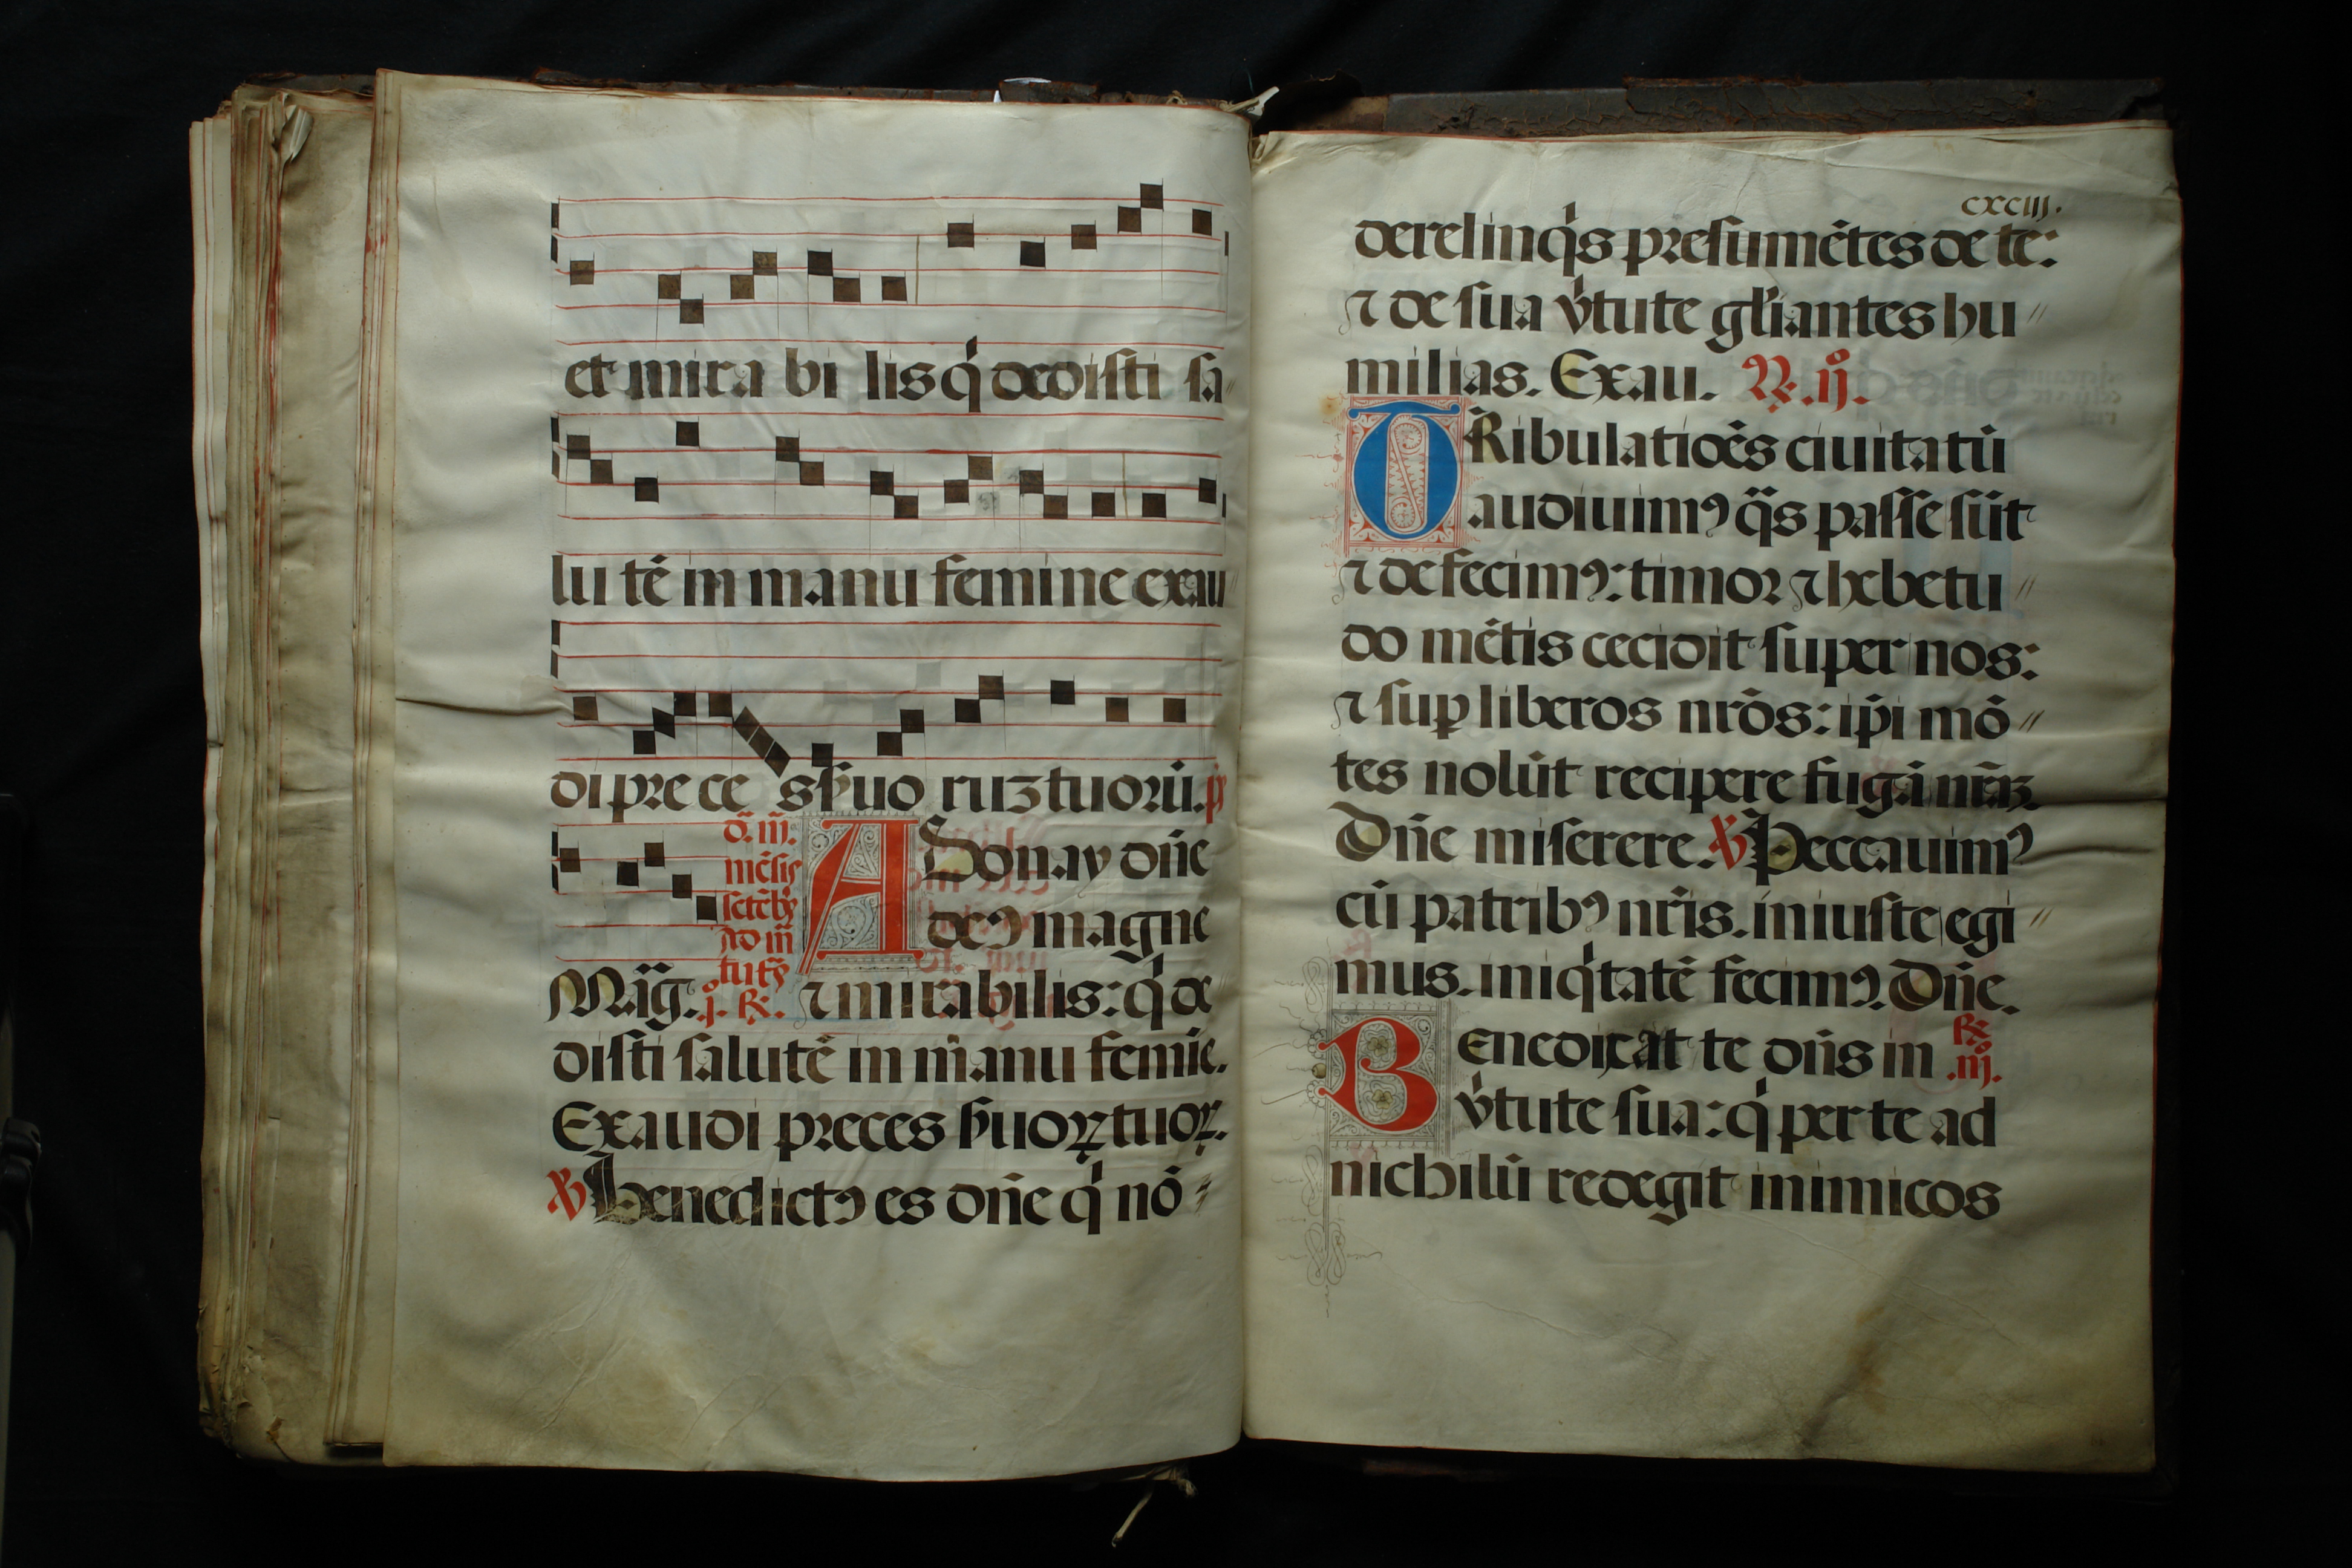 et mira bi lis q̇ dedisti sa〃
lu tē in manu femine exau〃
di pre ce s ẜuo ruʒ tuoꝝū. p̄s
Mãg.
d̄. iij.
mēsis
setēbꝝ
ꝛ. R.
ADonay dñe
deꝰ magne
⁊ mirabilis: q̇ de
disti salutē in manu femīe.
Exaudi preces ẜuoꝝ tuoꝝ.
℣ Benedictꝰ es dñe q̇ nō〃
cxciij.
derelinq̇s presumētes de te:
⁊ de sua v̓tute gl̄iantes hu〃
milias. Exau. ℞. ijͦ.
TRibulatiōes ciuitatū
audiuimꝰ q̃s passe sūt
⁊ defecimꝰ: timoꝛ ⁊ hebetu〃
do mētis cecidit super nos:
⁊ suꝑ liberos nr̄os: ip̄i mō〃
tes nolūt recipere fugā nr̄aʒ.
Dñe miserere. ℣ Peccauimꝰ
cū patribꝰ nr̄is. iniuste egi〃
mus. iniq̇tatē fecimꝰ. Dñe.
BEnedicat te dñs in ℞ iijͦ.
v̓tute sua: q̇ per te ad
nichilū redegit inimicos